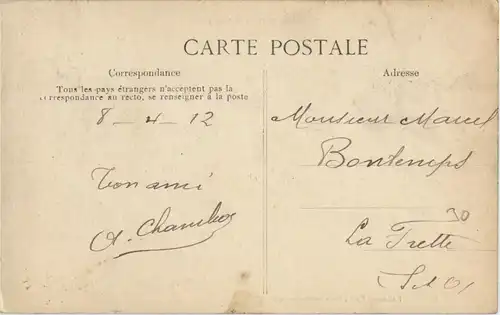 CARTE POSTALE
Correspondance
Tous les pays étrangers n'acceptent pas la
correspondance au recto, se renseigner à la poste
8 - 4 - 12
Ton ami
Adresse
Monsieur Marcel
Bontemps
30
La Frette
S et O